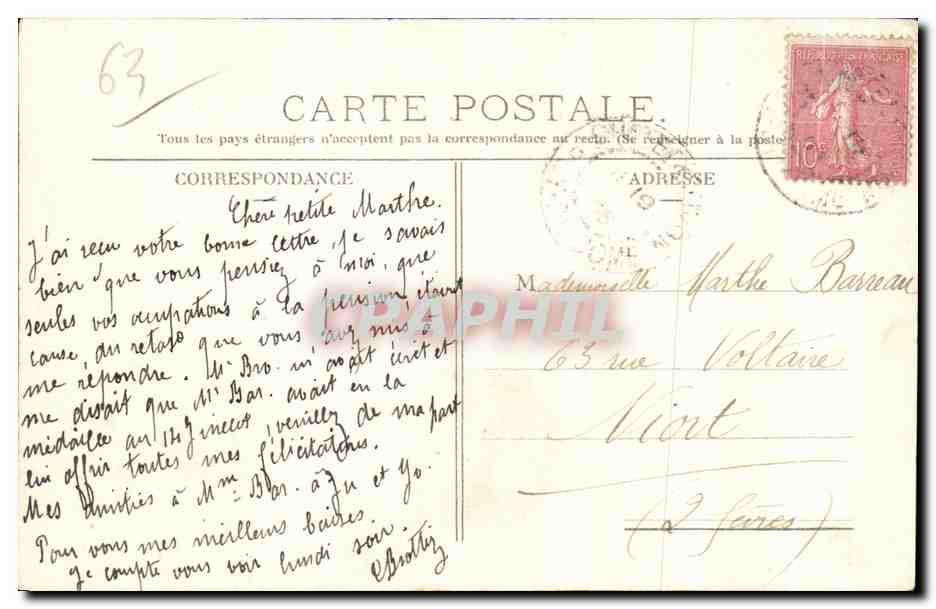 63
CARTE POSTALE.
Tous les pays étrangers n'acceptent pas la correspondance au recto. (Se renseigner à la poste
REPUBLIQUE FRANÇAISE
10c
CORRESPONDANCE
Chère petite Marthe.
J'ai reçu votre bonne lettre, je savais
bien que vous pensiez à moi, que
seules vos occupations à la pension étaient
cause du retard que vous avez mis à
me répondre. Mr Bro. m'avait écrit et
me disait que Mr Bar. avait eu la
médaille au 14 Juillet, veuillez de ma part
lui offrir toutes mes félicitations.
Mes amitiés à Mme Bar. à Ju et Yo.
Pour vous mes meilleurs baisers
Je compte vous voir lundi soir.
ADRESSE
Mademoiselle Marthe Barreau
63 rue Voltaire
Niort
(2 Sèvres)
CPAPHIL